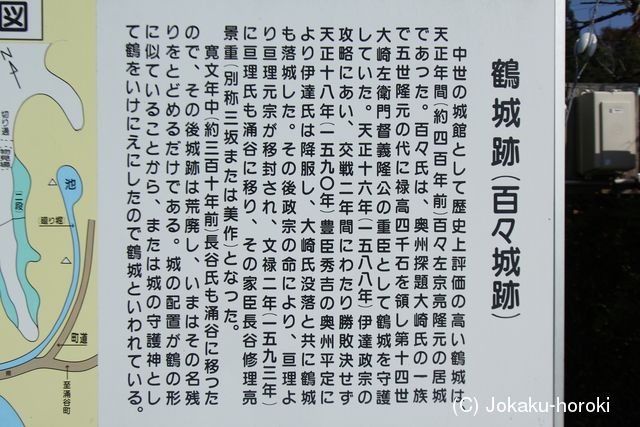 鶴城跡(百々城跡)
中世の城館として歴史上評価の高い鶴城は
天正年間(約四百年前)百々左京亮隆元の居城
であった。百々氏は、奥州探題大崎氏の一族
で五世隆元の代に禄高四千石を領し第十四世
大崎左衛門督義隆公の重臣として鶴城を守護
していた。天正十六年(一五八八年)伊達政宗の
攻略にあい、交戦二年間にわたり勝敗決せず
天正十八年(一五九〇年)豊臣秀吉の奥州平定に
より伊達氏は降服し、大崎氏没落と共に鶴城
も落城した。その後政宗の命により、亘理よ
り亘理元宗が移封され、文禄二年(一五九三年)
に亘理氏も涌谷に移り、その家臣長谷修理亮
景重(別称三坂または美作)となった。
寛文年中(約三百十年前)長谷氏も涌谷に移った
ので、その後城跡は荒廃し、いまはその名残
りをとどめるだけである。城の配置が鶴の形
に似ていることから、または城の守護神とし
て鶴をいけにえにしたので鶴城といわれている。
図
N
切り通
(物見場)
二段
池
廻り堀
町道
至涌谷町
(C) Jokaku-horoki